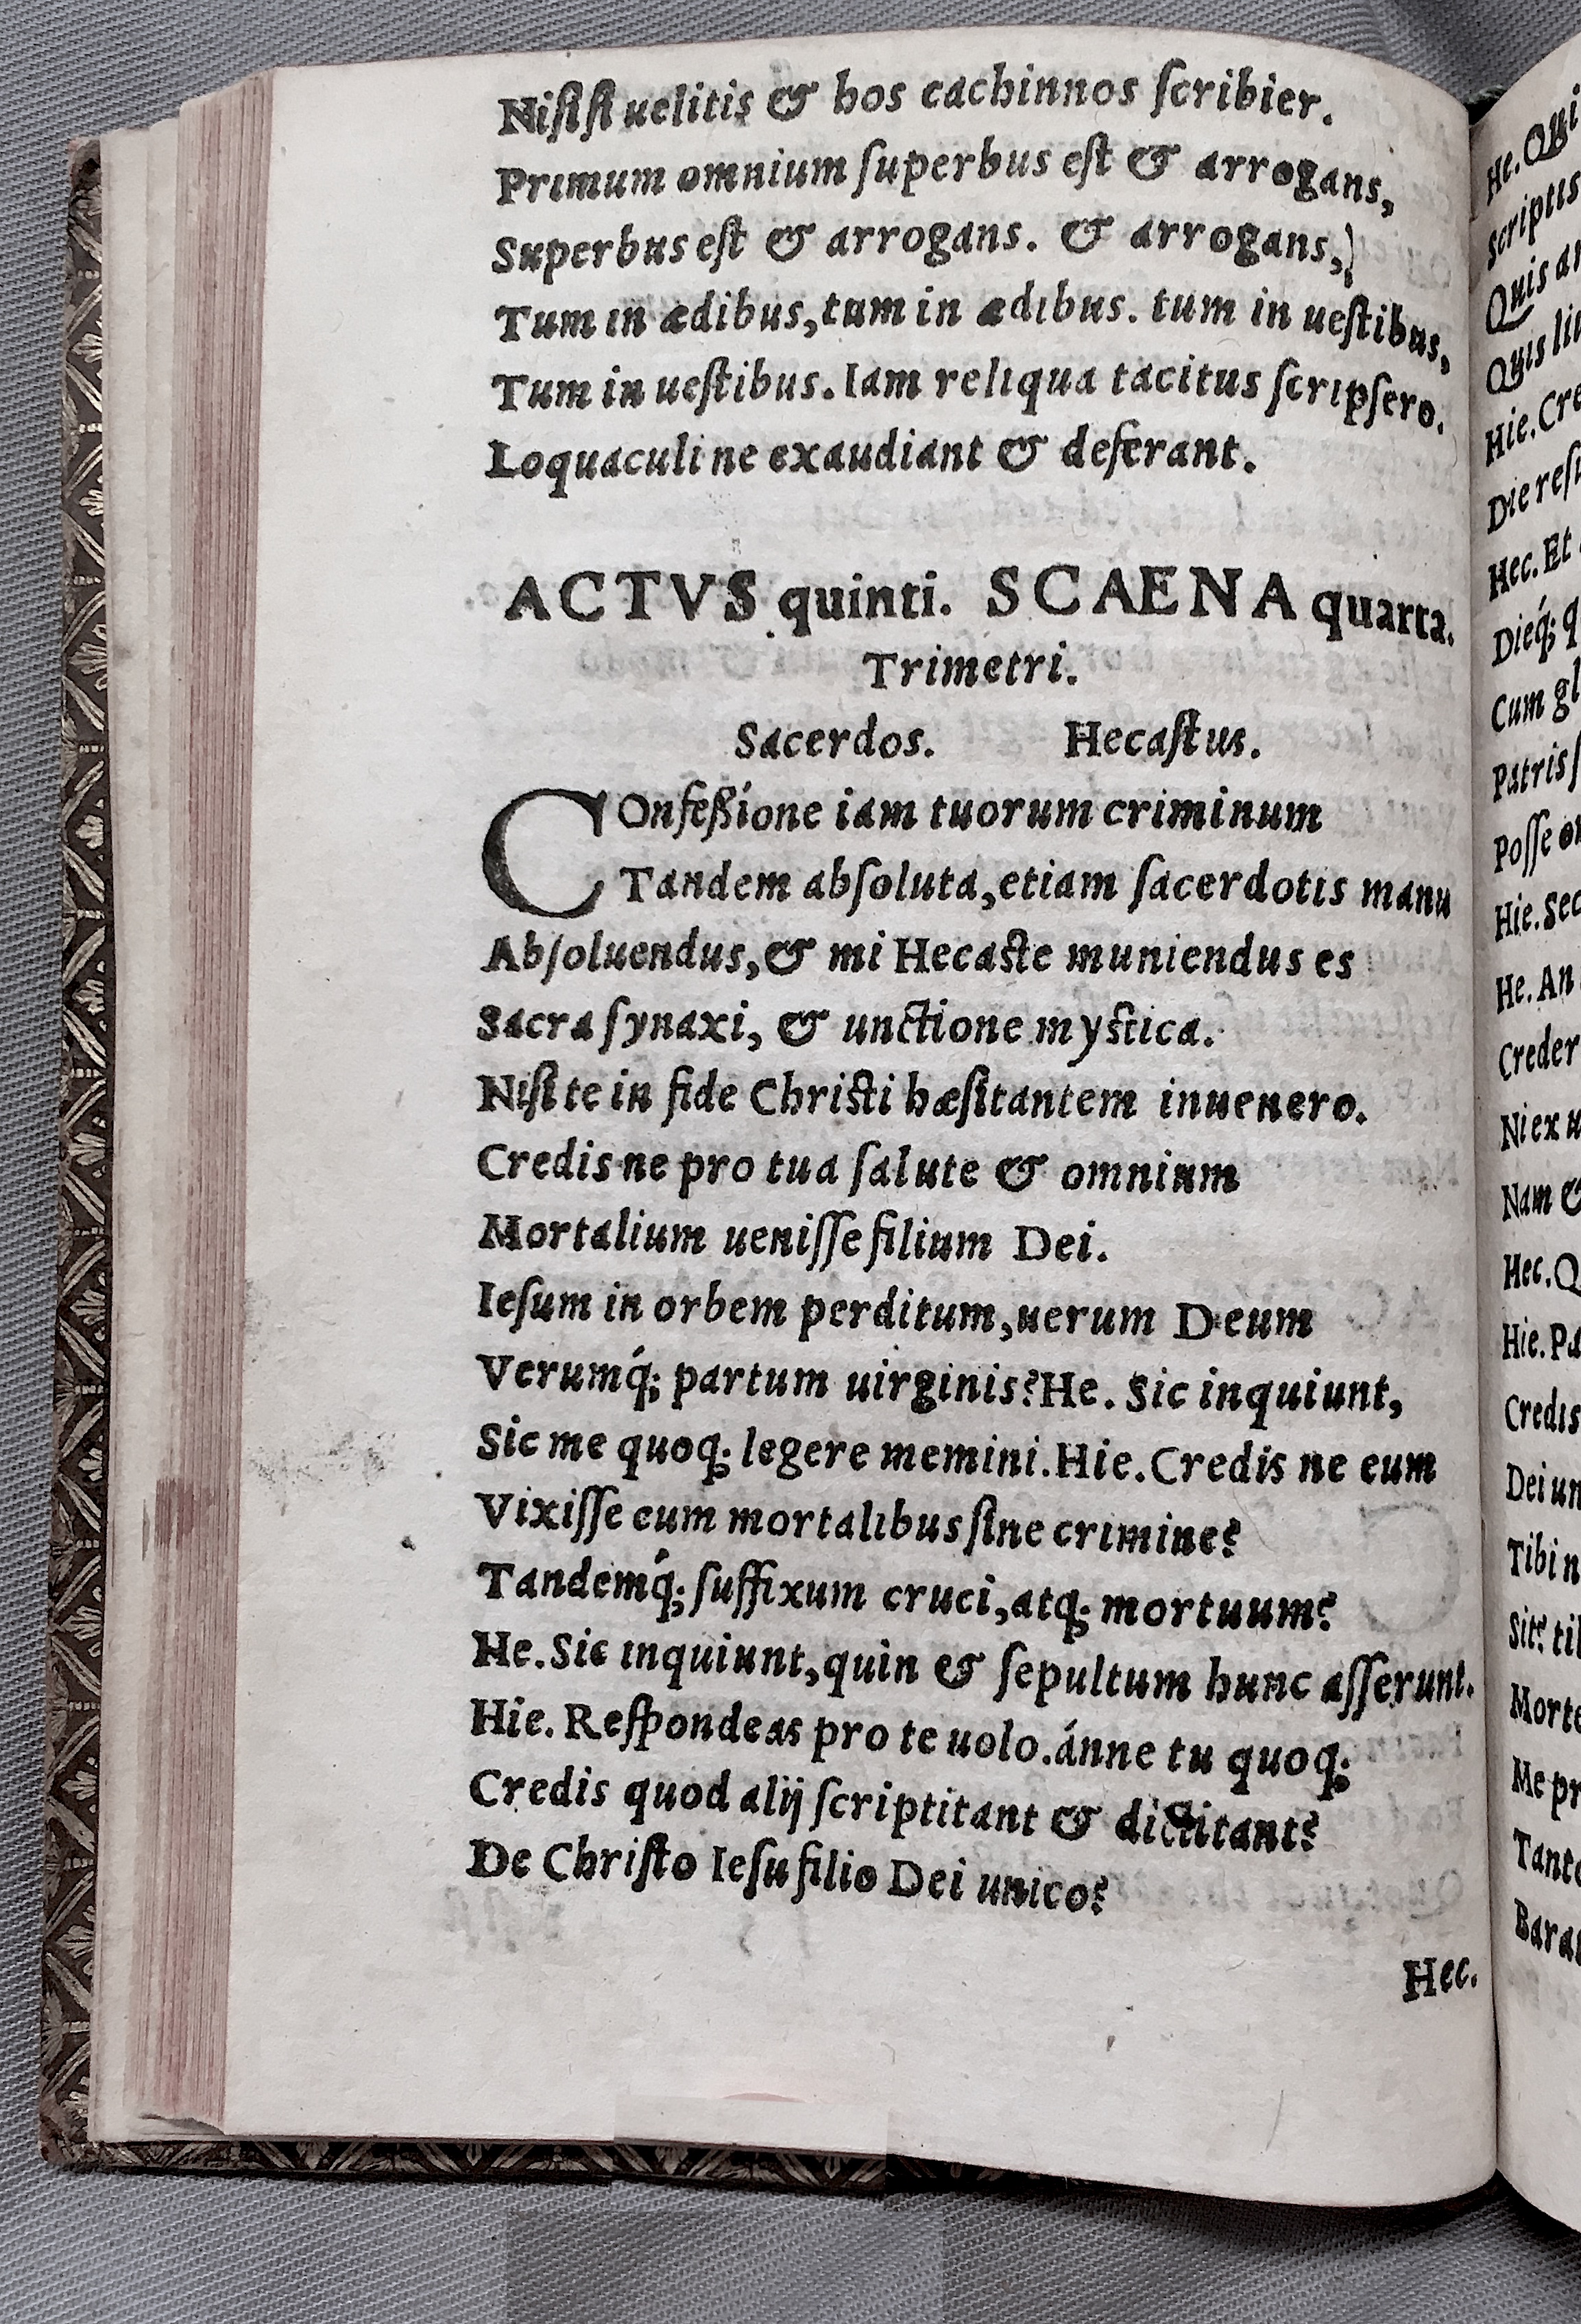 Niſi ſi uelitis & hos cachinnos ſcribier.
Primum omnium ſuperbus eſt & arrogans,
Superbus eſt & arrogans. & arrogans,)
Tum in ædibus, tum in ædibus. tum in ueſtibus,
Tum in ueſtibus. Iam reliqua tacitus ſcripſero.
Loquaculi ne exaudiant & deferant.
ACTVS quinti. SCAENA quarta.
Trimetri.
Sacerdos. Hecaſtus.
COnfeßione iam tuorum criminum
Tandem abſoluta, etiam ſacerdotis manu
Abſoluendus, & mi Hecaſte muniendus es
Sacra ſynaxi, & unctione myſtica.
Niſi te in fide Chriſti hæſitantem inuenero.
Credis ne pro tua ſalute & omnium
Mortalium ueniſſe filium Dei.
Ieſum in orbem perditum, uerum Deum
Verumq́; partum uirginis? He. Sic inquiunt,
Sic me quoq; legere memini. Hie. Credis ne eum
Vixiſſe cum mortalibus ſine crimine?
Tandemq́; ſuffixum cruci, atq; mortuum?
He. Sic inquiunt, quin & ſepultum hunc aſſerunt.
Hie. Reſpondeas pro te uolo. ánne tu quoq;
Credis quod alij ſcriptitant & dictitant?
De Chriſto Ieſu filio Dei unico?
Hec.
He. Qui
Scriptis
Quis
Quis
Hie. Cre
Die
Hec. Et
Dieq́;
Cum gl
Patris
Poſſe
Hie. Sec
He. An
Creder
Ni ex
Nam &
Hec. Q
Hie. Pa
Credis
Dei un
Tibi n
Sit? ti
Morte
Me pr
Tant
Bara